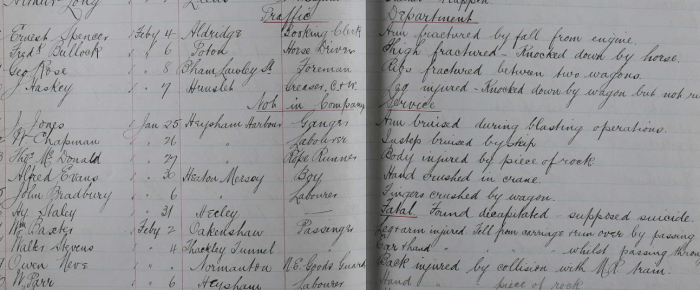 Arthur Long
Traffic Department
Ernest Spencer " Feby 4 Aldridge Booking Clerk Arm fractured by fall from engine.
Fredk Bullock " " 6 Poton Horse Driver Thigh fractured - Knocked down by horse.
Geo Rose " " 8 B'ham Lawley St Foreman Ribs fractured between two wagons.
J Haskey " " 7 Hunslet Greaser, C & W. Leg injured - Knocked down by wagon but not
Not in Company Service
J. Jones " Jan 25 Heysham Harbour Ganger Arm bruised during blasting operations.
W Chapman " " 26 " Labourer Instep bruised by skip
Thos McDonald " " 29 " Rope Runner Body injured by piece of rock
Alfred Evans " " 30 Heaton Mersey Boy Hand crushed in crane.
John Bradbury " " 6 " Labourer Fingers crushed by wagon.
Hy Staley " " 31 Heeley — Fatal Found decapitated - supposed suicide.
Wm Baxter " Feby 2 Oakenshaw Passenger Leg & arm injured Fell from carriage & run over by passing
Walter Stevens " " 4 Thackley Tunnel " Ear & hand " " " whilst passing
Owen Neve " " " Normanton N.E. Goods Guard Back injured by collision with M.R. train.
W. Parr " " 6 Heysham Labourer Hand " piece of rock